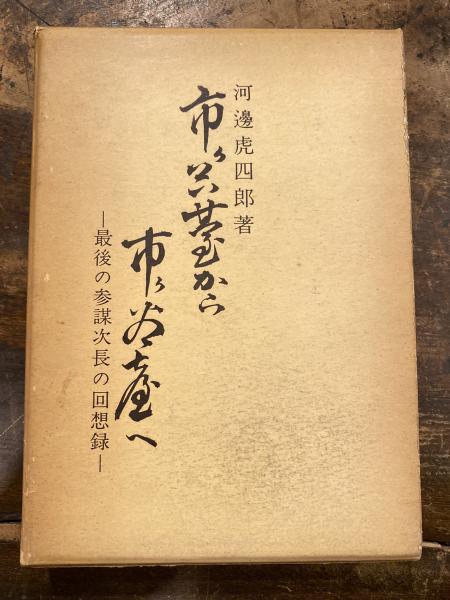 河邊虎四郎著
市ヶ谷臺から
市ヶ谷臺へ
―最後の参謀次長の回想録―